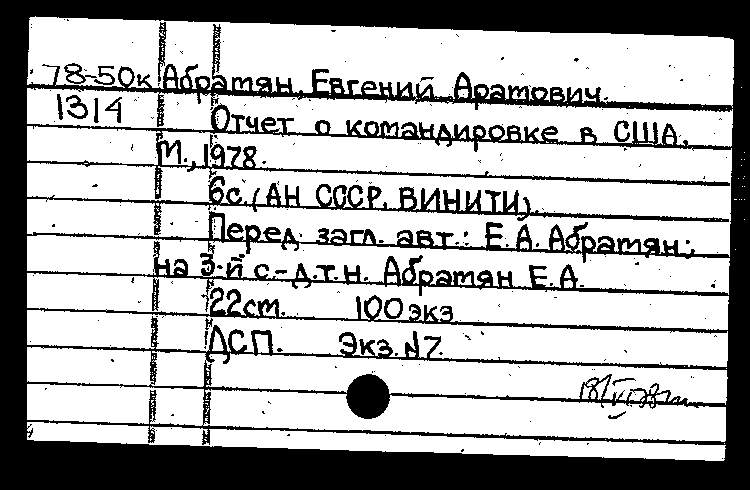 78-50к Абратян, Евгений Аратович.
1314 Отчет о командировке в США.
М., 1978.
6с. (АН СССР. ВИНИТИ).
Перед загл. авт.: Е.А. Абратян;
на 3-й с.-д.т.н. Абратян Е.А.
22см. 100 экз
ДСП. Экз. N7.